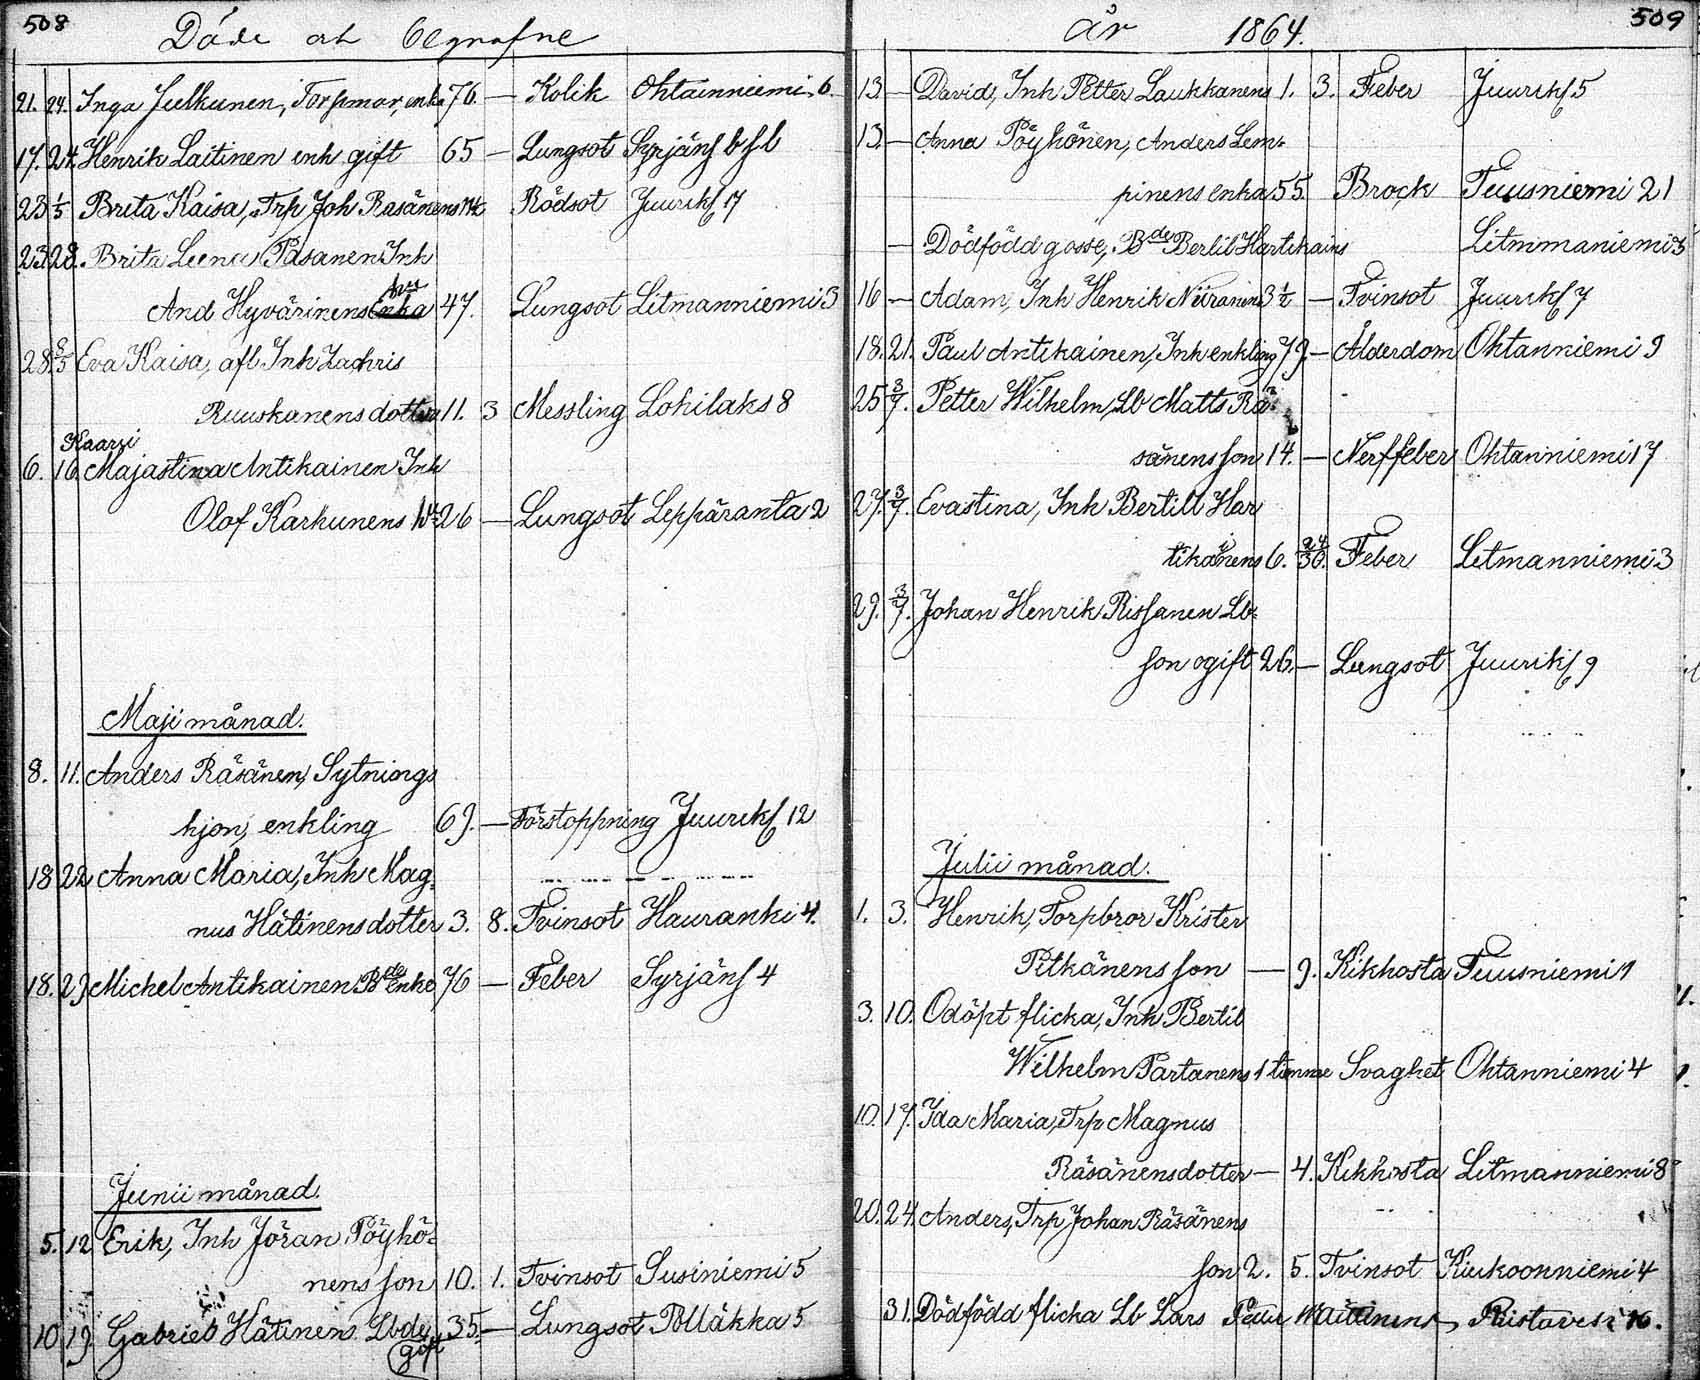 508
Döde och begrafne
21. 24. Inga Julkunen, Torpmor, enka 76 — Kolik Ohtainniemi 6.
17. 24. Henrik Laitinen enk gift 65 — Lungsot Syrjäns
23 1/5 Brita Kaisa, Trp Joh Räsänens Rödsot Juurikk 17
23. 28. Brita Leena Pasanen Inh
And Hyvärinens Enka 47. Lungsot Litmanniemi 3
28. Eva Kaisa, afl. Inh Zachris
Ruuskanens dotter 11. 3 Messling Lohilaks 8
Kaarzi
6. 16. Majastina Antikainen Inh
Olof Karhunens 26 — Lungsot Leppäranta 2
Maji månad.
8. 11. Anders Räsänen, Sytnings
hjon, enkling 69. — Förstoppning Juurikk 12
18 22 Anna Maria, Inh Mag-
nus Hätinens dotter 3. 8. Tvinsot Hauranki 4.
18. 29 Michel Antikainen Bde Enkl 76 — Feber Syrjäns 4
Junii månad.
5. 12 Erik, Inh Jöran Pöyhö-
nens son 10. 1. Tvinsot Susiniemi 5
10. 19. Gabriel Hätinens Lbde 35. — Lungsot Pölläkkä 5
gift
509
År 1864.
13 — David, Inh Petter Laukkanens 1. 3. Feber Juurikk 5
13. — Anna Pöyhönen, Anders Lem-
pinens enka 55. Brock Tuusniemi 21
— Dödfödd gosse, Bde Bertil Hartikains Litmmaniemi 3
16 — Adam, Inh Henrik Niiranens 3 1/2 — Tvinsot Juurikk 7
18. 21. Paul Antikainen, Inh enkling 79. — Ålderdom Ohtanniemi 9
25 3/7. Petter Wilhelm, Lb Matts Rä-
sänens son 14. — Nerffeber Ohtanniemi 17
27. 3/7. Evastina, Inh Bertill Har
tikainens 6. 24/30. Feber Litmanniemi 3
29. 3/7. Johan Henrik Rissanen Lb-
son ogift 26. — Lungsot Juurikk 9
Julii månad.
1. 3. Henrik, Torpbror Krister
Pitkänens son — 9. Kikhosta Tuusniemi 1
3. 10. Odöpt flicka, Inh Bertil
Wilhelm Partanens 1 timme Svaghet Ohtanniemi 4
10. 17. Ida Maria, Trp Magnus
Räsänens dotter — 4. Kikhosta Litmanniemi 8
20. 24. Anders, Trp Johan Räsänens
son 2. 5. Tvinsot Kiukoonniemi 4
31. Dödfödd flicka Lb Lars Petter Riistavesi 16.